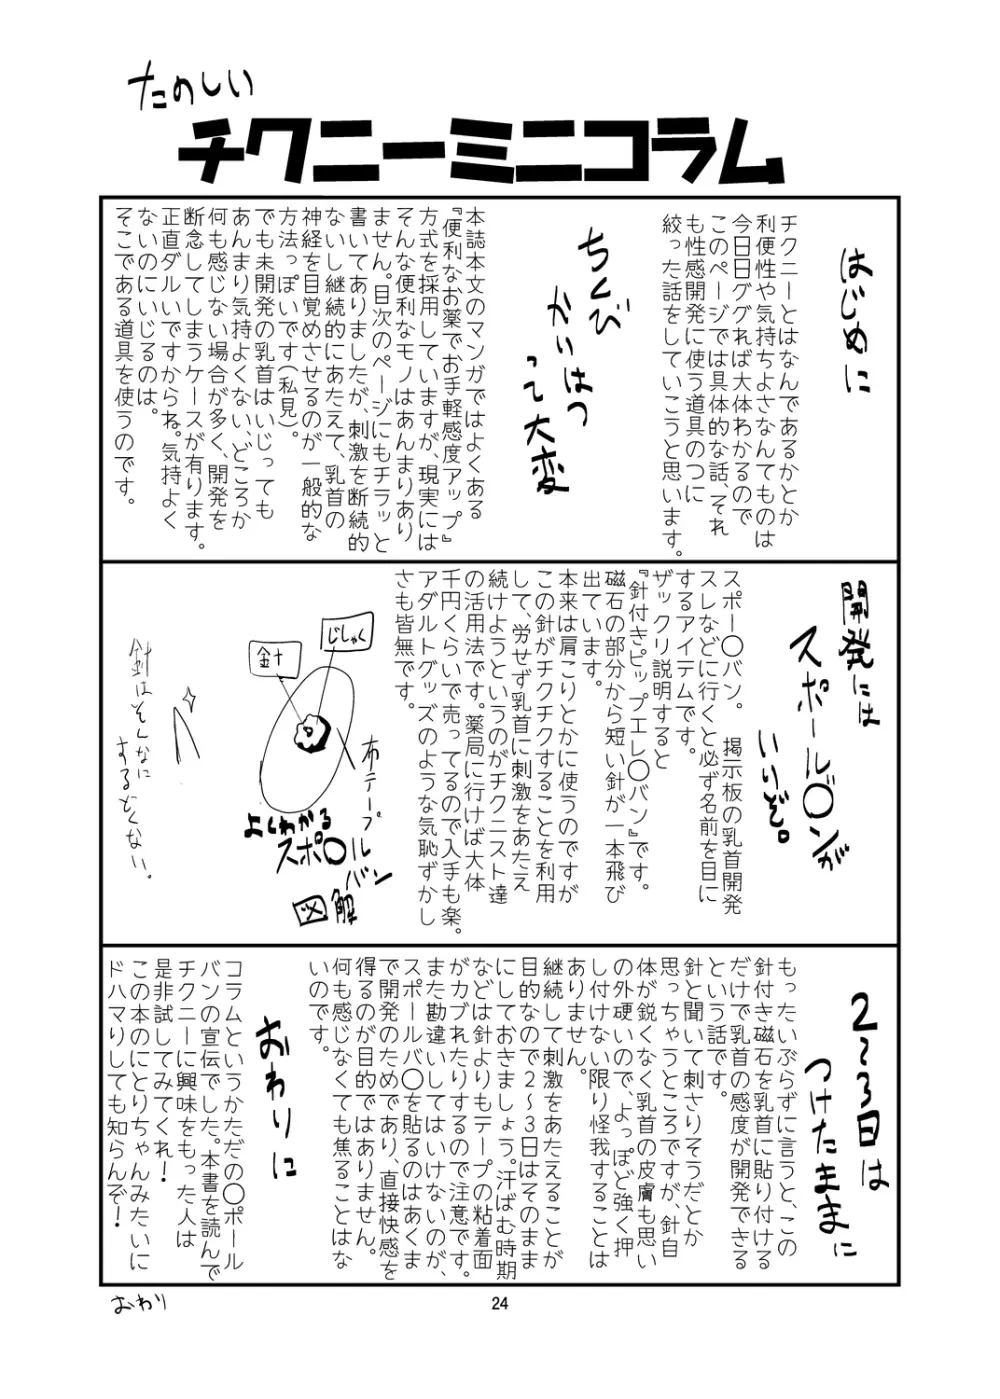 たのしい
チクニーミニコラム
はじめに
チクニーとはなんであるかとか
利便性や気持ちよさなんてものは
今日日ググれば大体わかるので
このページでは具体的な話、それ
も性感開発に使う道具のつに
絞った話をしていこうと思います。
ちくび
かいはつ
って大変
本誌本文のマンガではよくある
『便利なお薬でお手軽感度アップ』
方式を採用していますが、現実には
そんな便利なモノはあんまりあり
ません。目次のページにもチラッと
書いてありましたが、刺激を断続的
ないし継続的にあたえて、乳首の
神経を目覚めさせるのが一般的な
方法っぽいです（私見）。
でも未開発の乳首はいじっても
あんまり気持よくない、どころか
何も感じない場合が多く、開発を
断念してしまうケースが有ります。
正直ダルいですからね。気持よく
ないのにいじるのは。
そこである道具を使うのです。
開発には
スポール〇ンが
いいぞ。
スポー〇バン。　掲示板の乳首開発
スレなどに行くと必ず名前を目に
するアイテムです。
ザックリ説明すると
『針付きピップエレ〇バン』です。
磁石の部分から短い針が一本飛び
出ています。
本来は肩こりとかに使うのですが
この針がチクチクすることを利用
して、労せず乳首に刺激をあたえ
続けようというのがチクニスト達
の活用法です。薬局に行けば大体
千円くらいで売ってるので入手も楽。
アダルトグッズのような気恥ずかし
さも皆無です。
じしゃく
針
布テープ
よくわかる
スポ〇ル
バン
図解
針はそんなに
するどくない。
2～3日は
つけたままに
もったいぶらずに言うと、この
針付き磁石を乳首に貼り付ける
だけで乳首の感度が開発できる
という話です。
針と聞いて刺さりそうだとか
思っちゃうところですが、針自
体が鋭くなく乳首の皮膚も思い
の外硬いので、よっぽど強く押
し付けない限り怪我することは
ありません。
継続して刺激をあたえることが
目的なので２～３日はそのまま
にしておきましょう。汗ばむ時期
などは針よりもテープの粘着面
がカブれたりするので注意です。
また勘違いしてはいけないのが、
スポールバ〇を貼るのはあくま
で開発のためであり、直接快感を
得るのが目的ではありません。
何も感じなくても焦ることはな
いのです。
おわりに
コラムというかただの〇ポール
バンの宣伝でした。本書を読んで
チクニーに興味をもった人は
是非試してみてくれ！
この本のにとりちゃんみたいに
ドハマりしても知らんぞ！
おわり
24